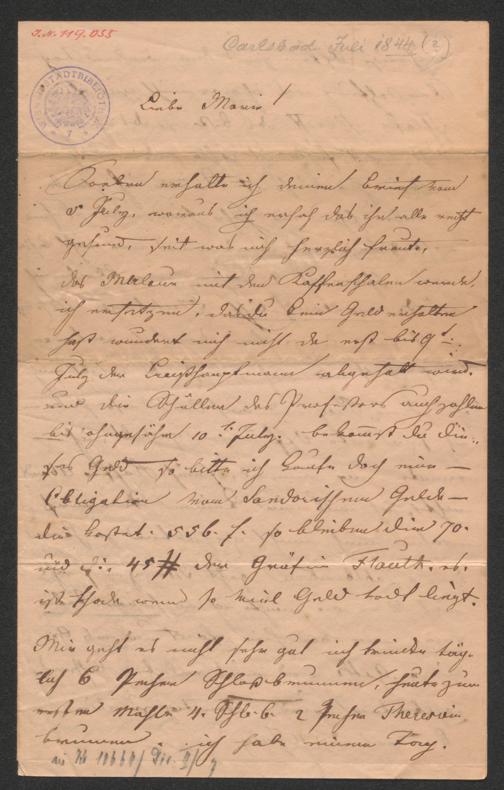 J.N. 119.035
Carlsbad Juli 1844 (2
WIENER STADTBIBLIOTHEK
Liebe Marie!
Soeben erhalte ich deinen Brief vom
5 July, woraus ich ersah das ihr alle recht
gesund, seit was mich herzlich freute,
das Maleur mit den Kaffeeschalen werde
ich ersetzen, das du kein Geld erhalten
hast wundert mich nicht da erst bis 9t
July der Kreishauptmann abgeholt wird.
und die Schüller des Professors auch zahlen
bis ohngefähr 10t July. bekommst du die-
ses Geld so bitte ich kaufe doch eine
Obligation vom Sandorischen Gelde
die kostet. 556 f. so bleiben dir 70.
und 45 # der Gräfin es
ist schade wenn so viel Geld todt liegt.
Mir geht es nicht sehr gut ich trinke täg-
lich 6 Becher Schloßbrunnen, heute zum
ersten Mahle 4. Schl. b. 2 Becher Theresien
brunnen. ich habe einen